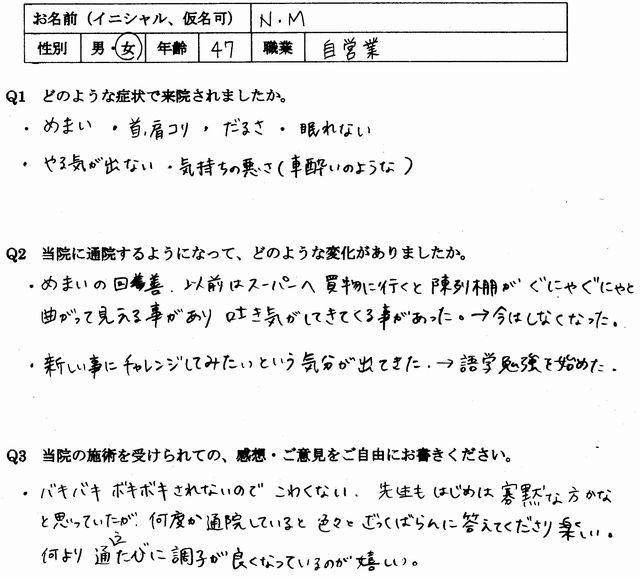 お名前(イニシャル、仮名可) N.M
性別 男・女 年齢 47 職業 自営業
Q1 どのような症状で来院されましたか。
・めまい ・首,肩コリ ・だるさ ・眠れない
・やる気が出ない ・気持ちの悪さ(車酔いのような)
Q2 当院に通院するようになって、どのような変化がありましたか。
・めまいの回善. 以前はスーパーへ買物に行くと陳列棚がぐにゃぐにゃと
曲がって見える事があり 吐き気がしてきてくる事があった。→今はしなくなった。
・新しい事にチャレンジしてみたいという気分が出てきた.→語学勉強を始めた.
Q3 当院の施術を受けられての、感想・ご意見をご自由にお書きください。
・バキバキ ボキボキされないので こわくない. 先生も はじめは 寡黙な方かな
と思っていたが. 何度か通院していると 色々と ざっくばらんに答えてくださり 楽しい。
何より 通うたびに調子が良くなっているのが嬉しい。